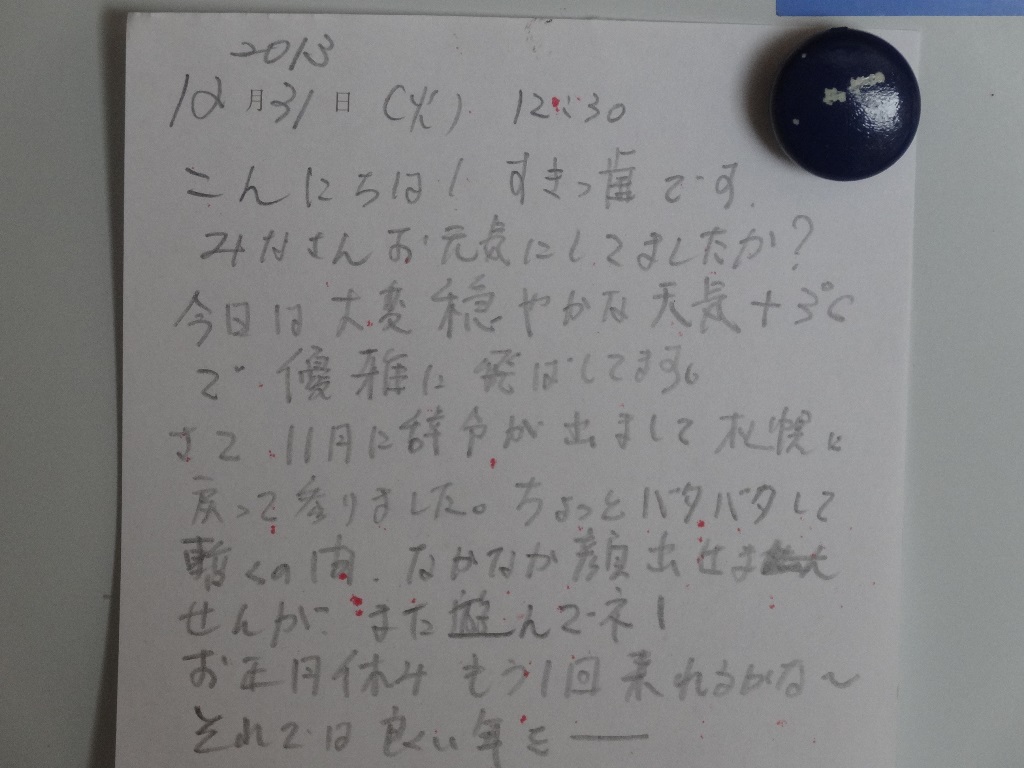 2013
12月31日 (火) 12:30
こんにちは! すきっ歯です.
みなさんお元気にしてましたか?
今日は大変穏やかな天気+3℃
で 優雅に 飛ばしてます。
さて 11月に辞令が出まして札幌に
戻って参りました。ちょっとバタバタして
暫くの間、なかなか顔出せま
せんが、また遊んでネ!
お正月休みもう1回来れるかな~
それでは良い年を――